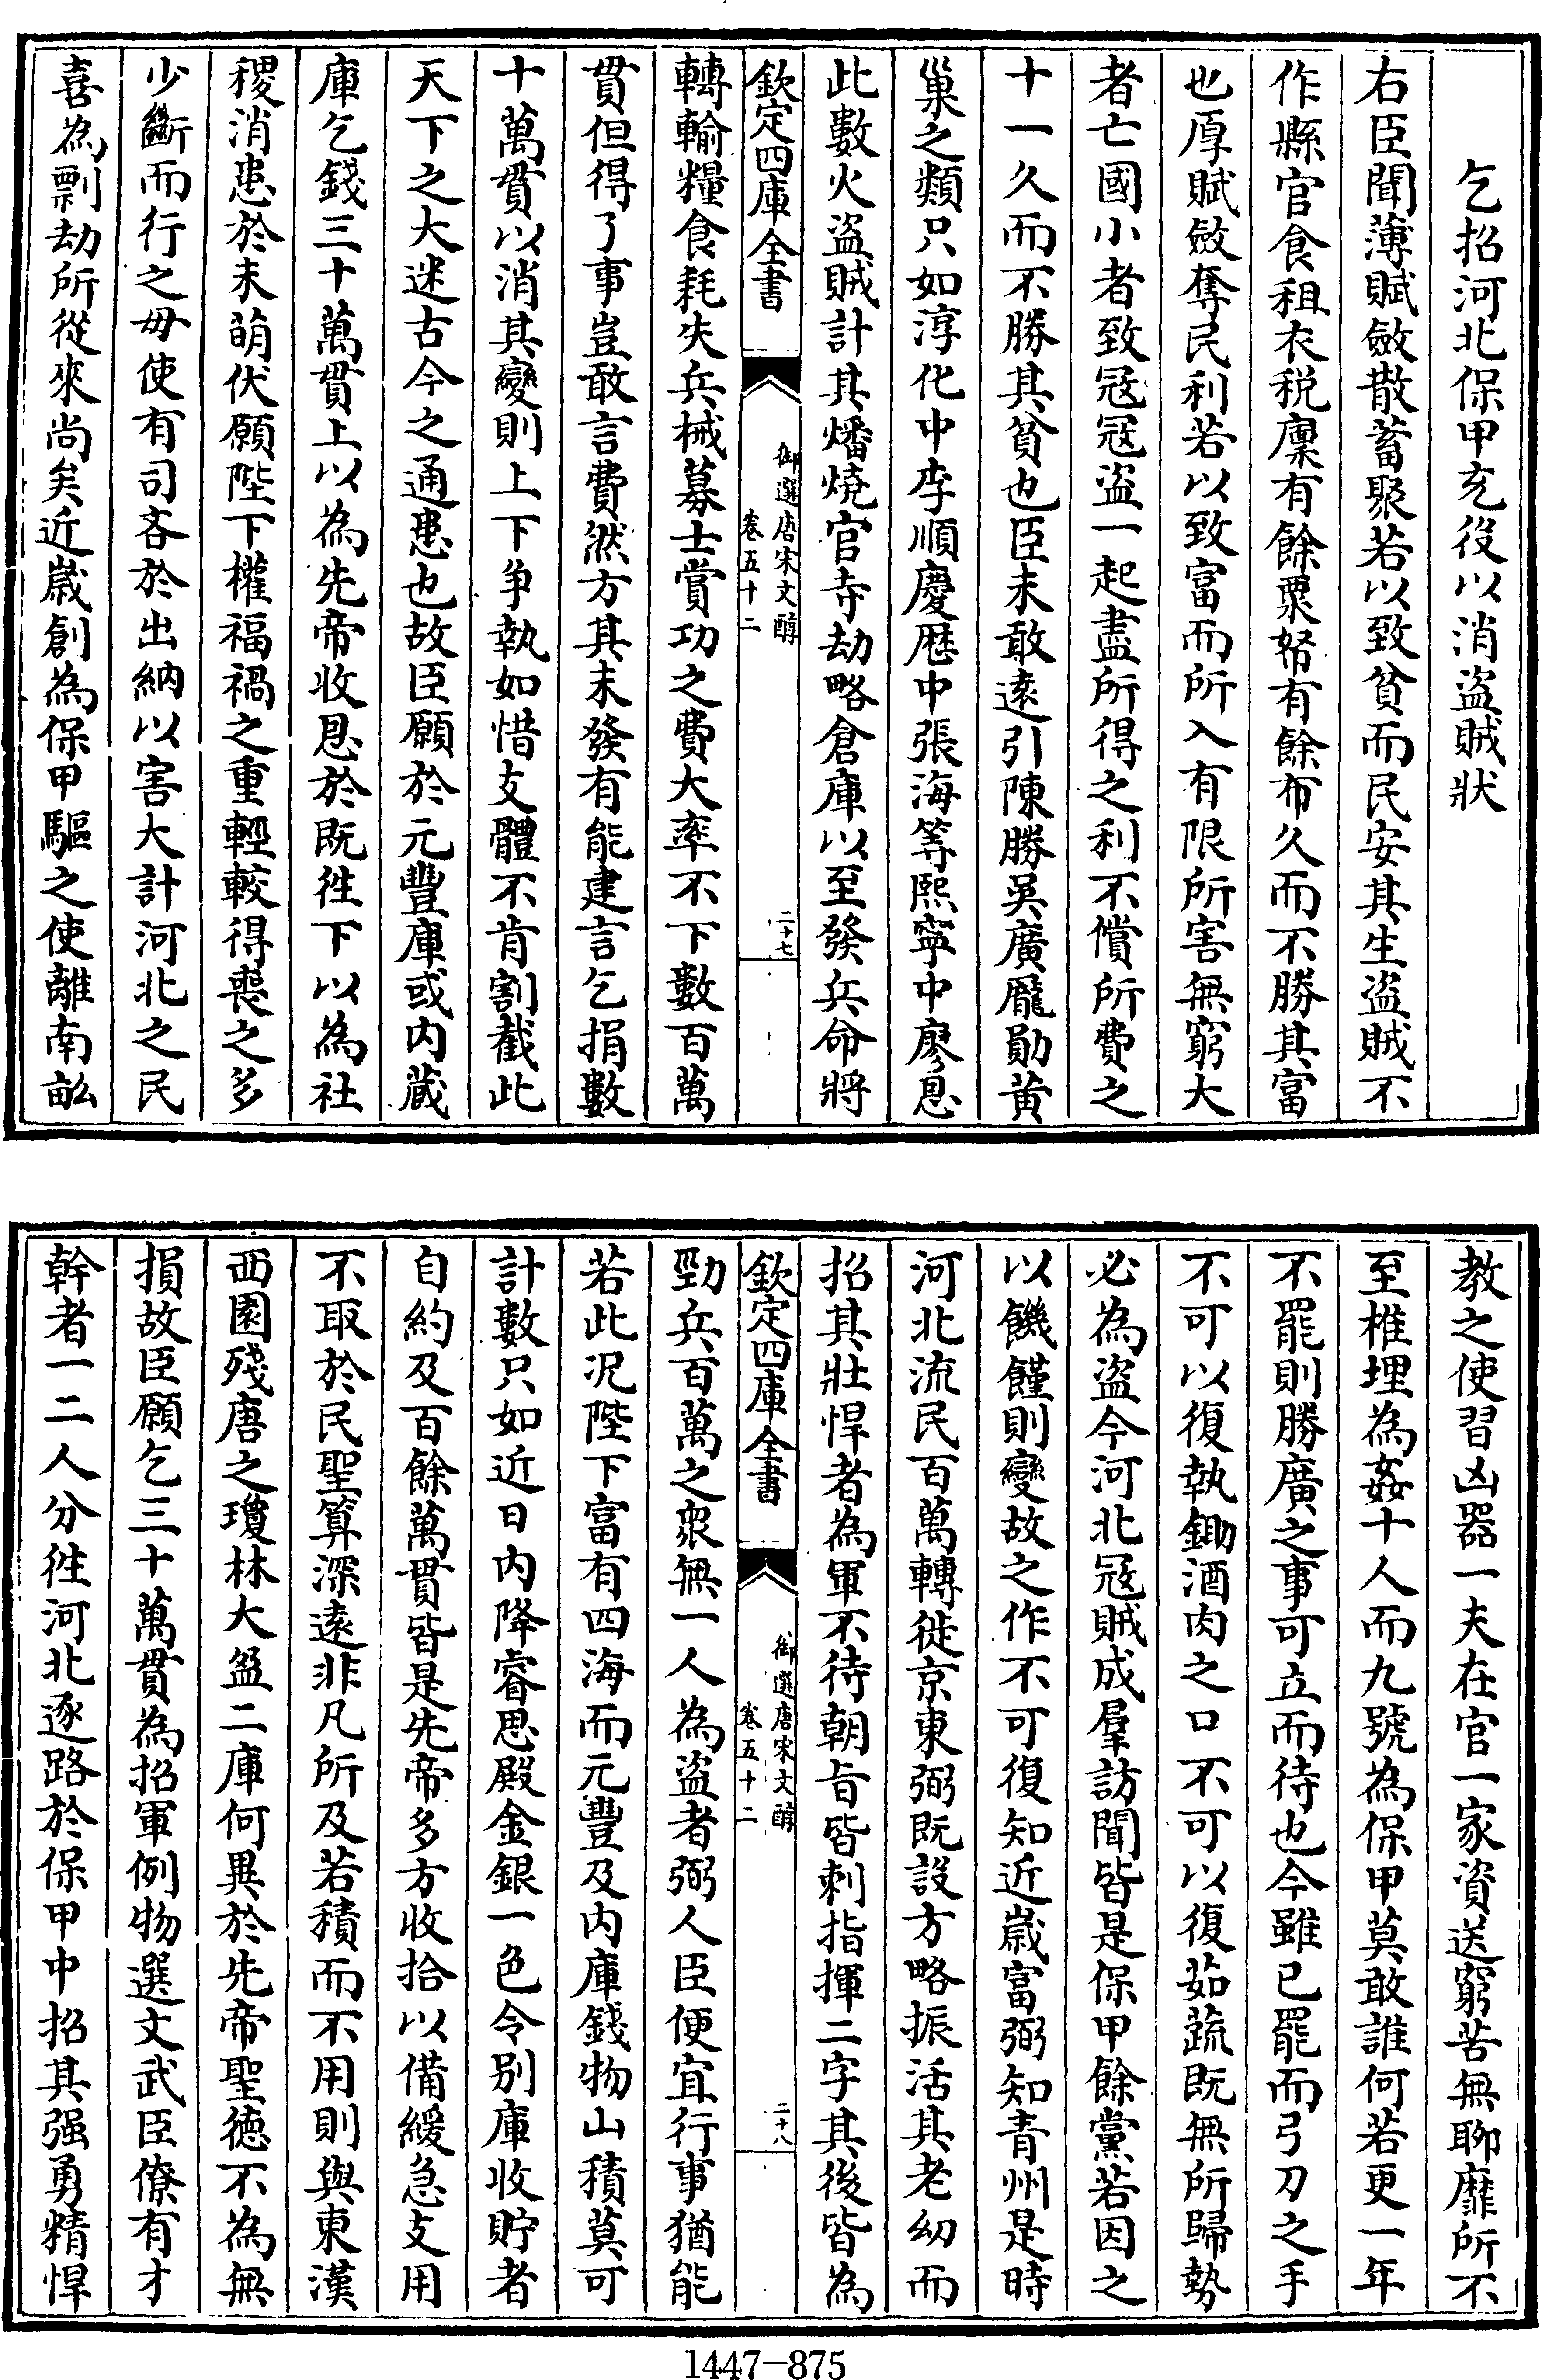 乞招河北保甲充役以消盗賊狀
右臣聞薄賦斂散蓄聚若以致貧而民安其生盗賊不
作縣官食租衣税廩有餘粟帑有餘布久而不勝其富
也厚賦斂奪民利若以致富而所入有限所害無窮大
者亡國小者致冦冦盗一起盡所得之利不償所費之
十一久而不勝其貧也臣未敢逺引陳勝吳廣龎勛黄
巢之類只如淳化中李順慶厯中張海等熙寧中廖恩
此數火盗賊計其燔燒官寺劫略倉庫以至發兵命將
欽定四庫全書
御選唐宋文醇
卷五十二
二十七
轉輸糧食耗失兵械募士賞功之費大率不下數百萬
貫但得了事豈敢言費然方其未發有能建言乞捐數
十萬貫以消其變則上下争執如惜支體不肯割截此
天下之大迷古今之通患也故臣願於元豐庫或内藏
庫乞錢三十萬貫上以為先帝收恩於既徃下以為社
稷消患於未萌伏願陛下權福禍之重輕較得喪之多
少斷而行之毋使有司吝於出納以害大計河北之民
喜為剽劫所從來尚矣近嵗創為保甲驅之使離南畝
教之使習凶器一夫在官一家資送窮苦無聊靡所不
至椎埋為姦十人而九號為保甲莫敢誰何若更一年
不罷則勝廣之事可立而待也今雖已罷而弓刀之手
不可以復執鋤酒肉之口不可以復茹蔬既無所歸勢
必為盗今河北冦賊成羣訪聞皆是保甲餘黨若因之
以饑饉則變故之作不可復知近嵗富弼知青州是時
河北流民百萬轉徙京東弼既設方略振活其老幼而
招其壯悍者為軍不待朝旨皆刺指揮二字其後皆為
欽定四庫全書
御選唐宋文醇
卷五十二
二十八
勁兵百萬之衆無一人為盗者弼人臣便宜行事猶能
若此况陛下富有四海而元豐及内庫錢物山積莫可
計數只如近日内降睿思殿金銀一色令别庫收貯者
自約及百餘萬貫皆是先帝多方收拾以備緩急支用
不取於民聖算深逺非凡所及若積而不用則與東漢
西園殘唐之瓊林大盈二庫何異於先帝聖徳不為無
損故臣願乞三十萬貫為招軍例物選文武臣僚有才
幹者一二人分徃河北逐路於保甲中招其强勇精悍
1447—875